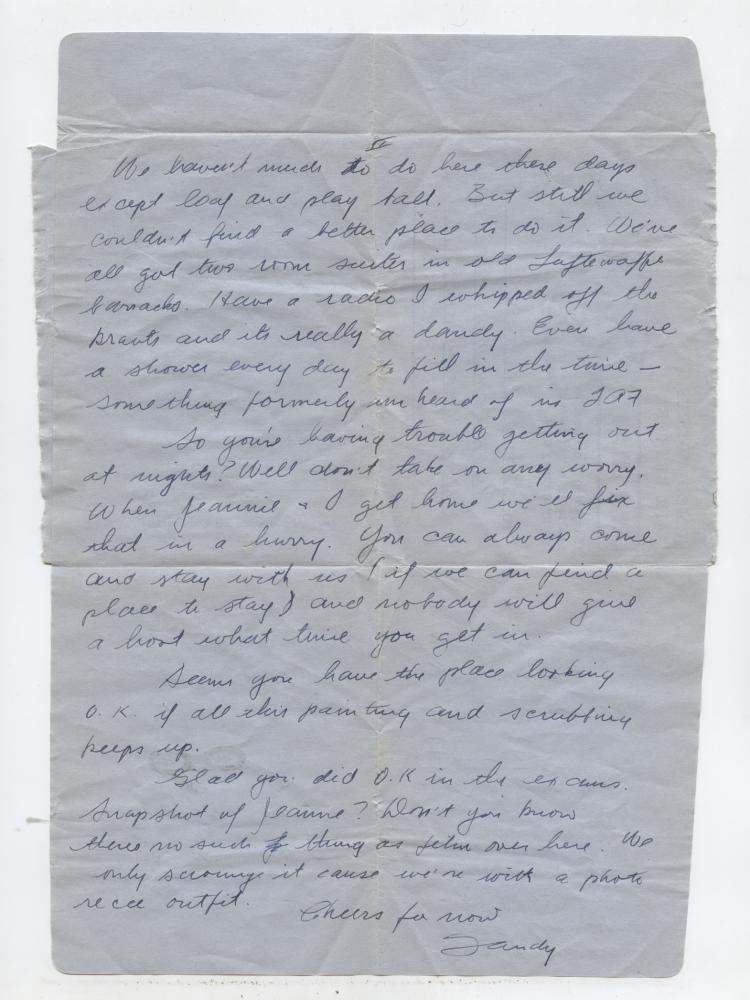 II
We haven't much to do here these days
except loaf and play ball. But still we
couldn't find a better place to do it. We've
all got two room suites in old Luftewaffe
barracks. Have a radio I whipped off the
krauts and its really a dandy. Even have
a shower every day to fill in the time –
something formerly unheard of in 2AF
So you're having trouble getting out
at nights? Well don't take on any worry.
When Jeannie & I get home we'll fix
that in a hurry. You can always come
and stay with us (if we can find a
place to stay) and nobody will give
a hoot what time you get in.
Seems you have the place looking
O.K. if all this painting and scrubbing
keeps up.
Glad you did O.K in the exams.
Snapshot of Jeanne? Don't you know
there no such thing as film over here. We
only scrounge it cause we're with a photo
recce outfit.
Cheers for now
Sandy